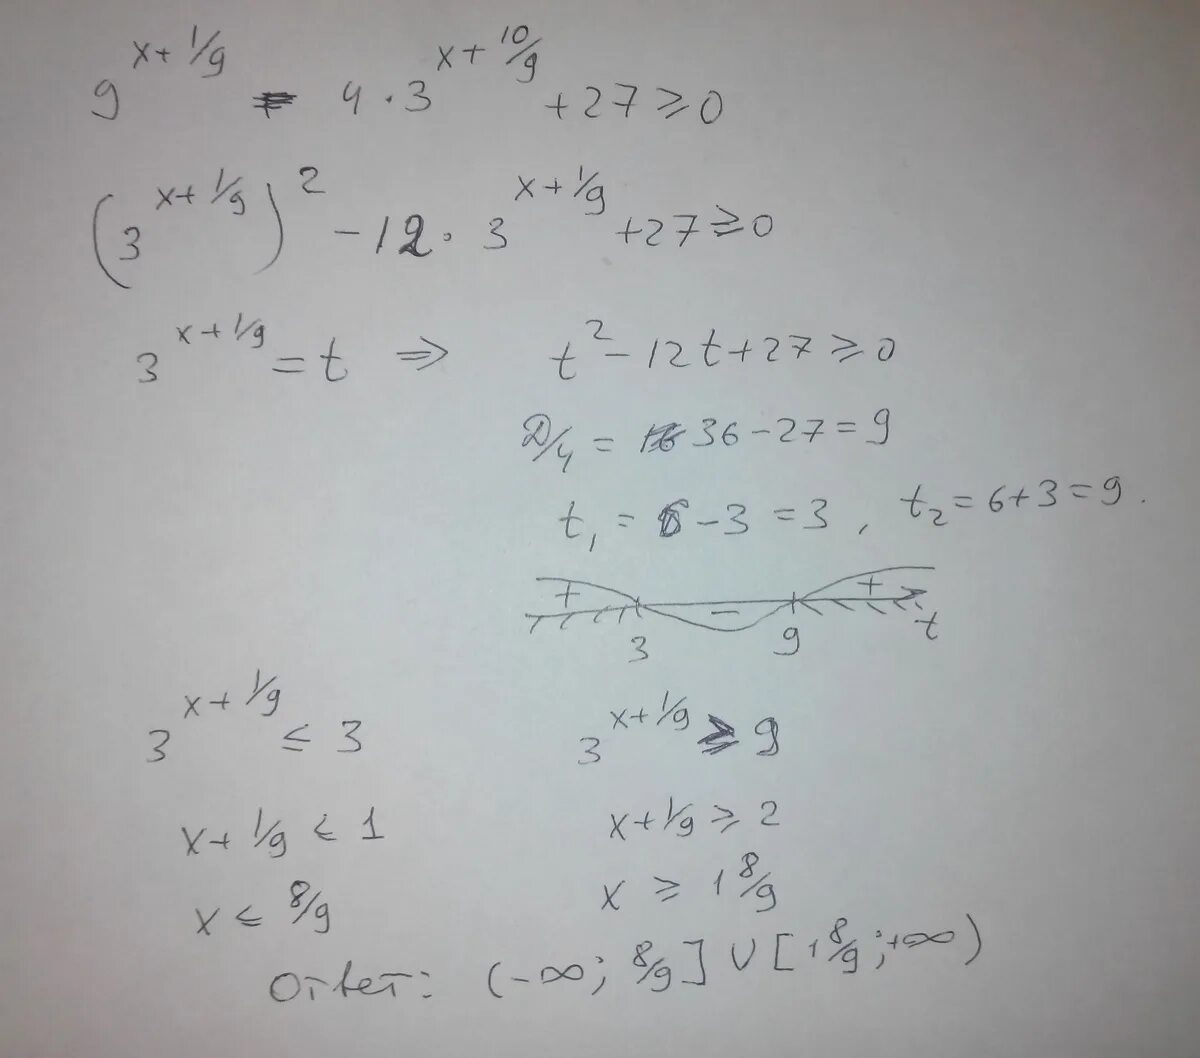 9^(x+1/9) - 4·3^(x+10/9) +27≥0
(3^(x+1/9))^2 -12·3^(x+1/9) +27≥0
3^(x+1/9) = t ⇒ t^2-12t+27≥0
D/4 = 36-27=9
t₁ = 6-3=3, t₂=6+3=9.
+ - +
3 9 t
3^(x+1/9) ≤ 3 3^(x+1/9) ≥ 9
x+1/9 ≤ 1 x+1/9 ≥ 2
x ≤ 8/9 x ≥ 1 8/9
Ответ: (-∞; 8/9] ∪ [1 8/9; +∞)